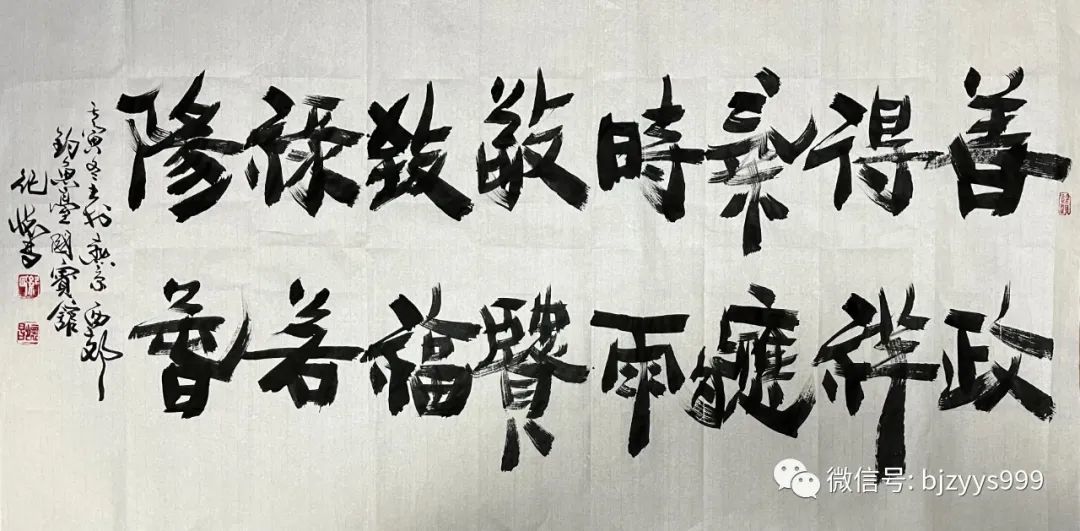 善政
得祥
氣應
時雨
敬賢
致福
祿若
壬寅冬書於燕京西郊
釣魚臺國賓館
微信号: bjzyys999